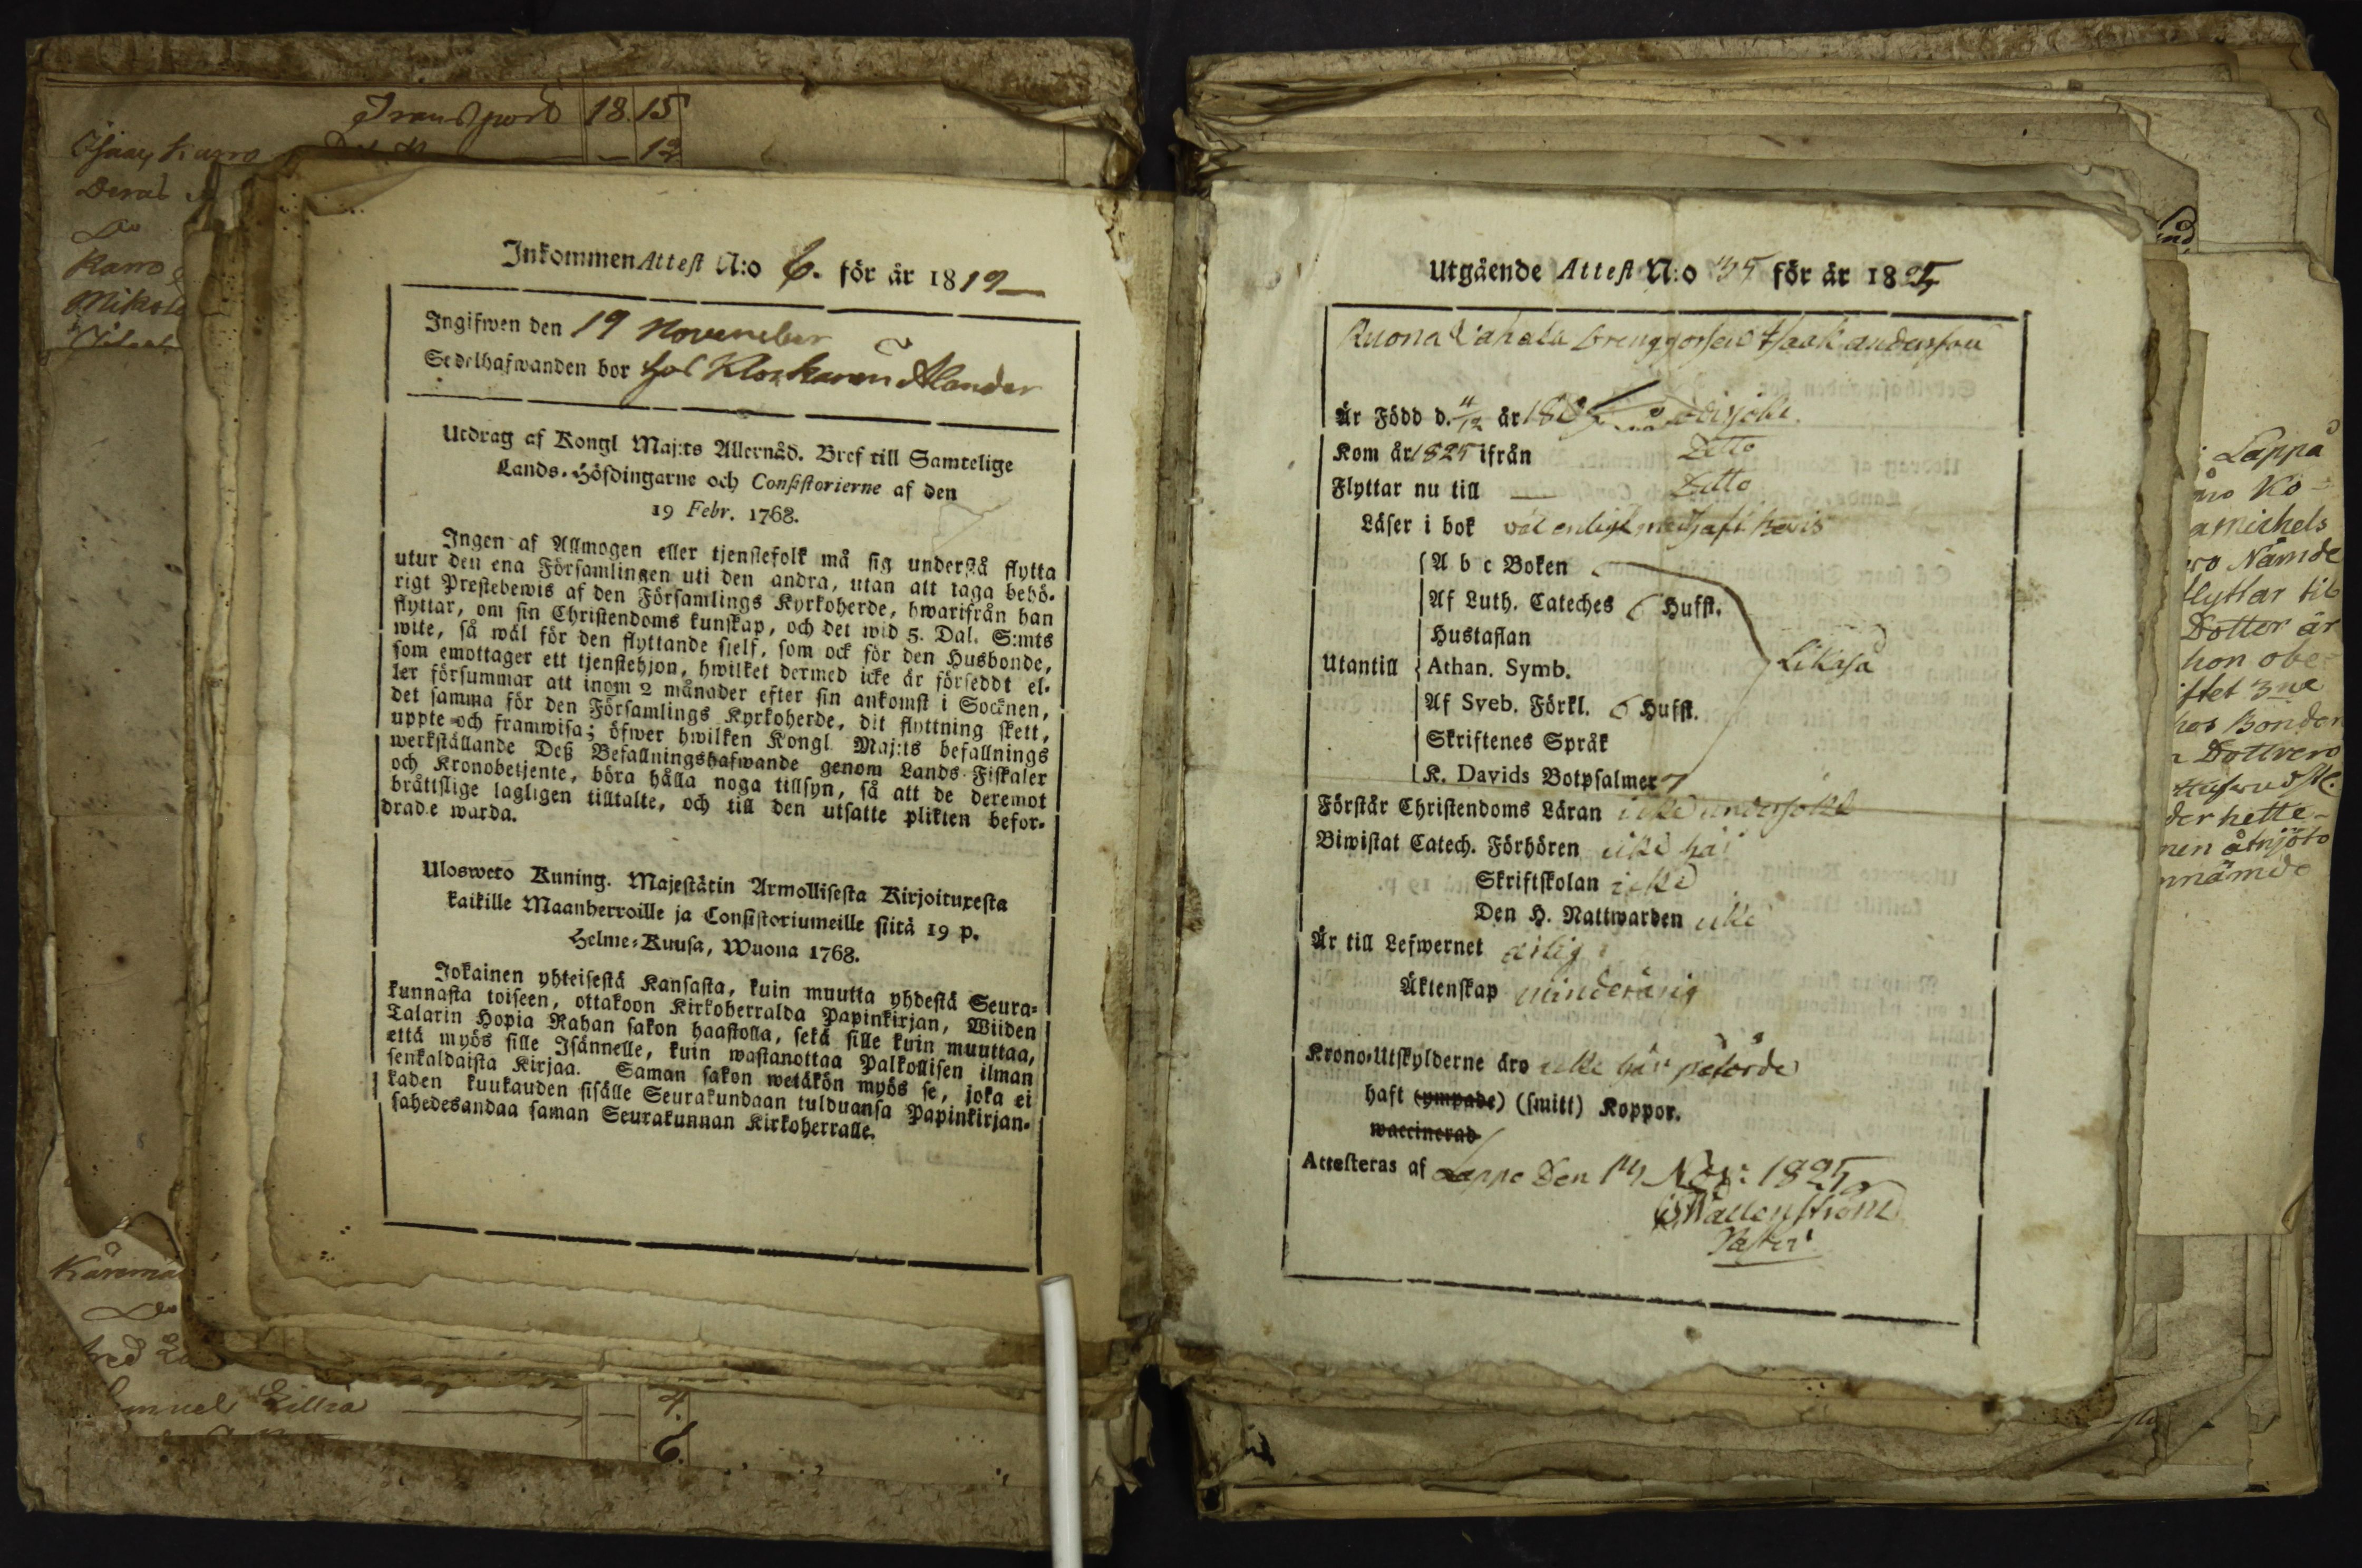 Transport 18. 15
Isaac Karro — 12
Derat
Do
Karro
Mikola
Inkommen Attest N:o 6. för år 1819
Ingifwen den 19 November
Sedelhafwanden bor hos Klockaren Alander
Utdrag af Kongl Maj:ts Allernåd. Bref till Samtelige
Lands-Höfdingarne och Consistorierne af den
19 Febr. 1768.
Ingen af Allmogen eller tjenstefolk må sig understå flytta
utur den ena Församlingen uti den andra, utan att taga behö-
rigt Prestebewis af den Församlings Kyrkoherde, hwarifrån han
flyttar, om sin Christendoms kunskap, och det wid 5. Dal. S:mts
wite, så wäl för den flyttande sjelf, som ock för den Husbonde,
som emottager ett tjenstehjon, hwilket dermed icke är försedt el-
ler försummar att inom 2 månader efter sin ankomst i Socknen,
det samma för den Församlings Kyrkoherde, dit flyttning skett,
uppte och framwisa; öfwer hwilken Kongl Maj:ts befallnings
werkställande Deß Befallningshafwande genom Lands Fiskaler
och Kronobetjente, böra hålla noga tillsyn, så att de deremot
bråttslige lagligen tilltalte, och till den utsatte plikten befor-
drade warda.
Ulosweto Kuning. Majestätin Armollisesta Kirjoituxesta
kaikille Maanherroille ja Consistoriumeille siitä 19 p.
Helme-Kuusa, Wuona 1768.
Jokainen yhteisestä Kansasta, kuin muutta yhdestä Seura-
kunnasta toiseen, ottakoon Kirkoherralda Papinkirjan, Wiiden
Talarin Hopia Rahan sakon haastolla, sekä sille kuin muuttaa,
että myös sille Isännelle, kuin wastanottaa Palkollisen ilman
senkaldaista Kirjaa. Saman sakon wetäkön myös se, joka ei
kaden kuukauden sisälle Seurakundaan tulduansa Papinkirjan-
sahedesandaa saman Seurakunnan Kirkoherralle.
Käremä
Do
Samuel Lillia — 4.
6.
Utgående Attest N:o 35 för år 1825
Ruona Wahala Drenggossen Isaak andersson
Är Född d. 4/12 år 180
Kom år 1825 ifrån Ditto
Flyttar nu till — Ditto
Läser i bok wäl enligt medhaft bewis
A b c Boken
Af Luth. Cateches 6 Hufst.
Hustaflan
Utantill Athan. Symb. Likaså
Af Sveb. Förkl. 6 Hufst.
Skriftenes Språk
K. Davids Botpsalmer 7
Förstår Christendoms Läran icke undersökt
Biwistat Catech. Förhören icke här
Skriftskolan icke
Den H. Nattwarden icke
Är till Lefwernet ärlig
Äktenskap minderårig
Krono-Utskylderne äro icke här påförde
haft (ympade) (smitt) Koppor.
waccinerad
Attesteras af Lappo Den 14 Nov: 1825
Wallenström
Past:
Lappå
Ko-
amichels
ro Nämde
flyttar til
Dotter är
hon obe-
iftet 3ne
hos Bonden
Dottrero
der hette-
nen åtnjöto
nnämde